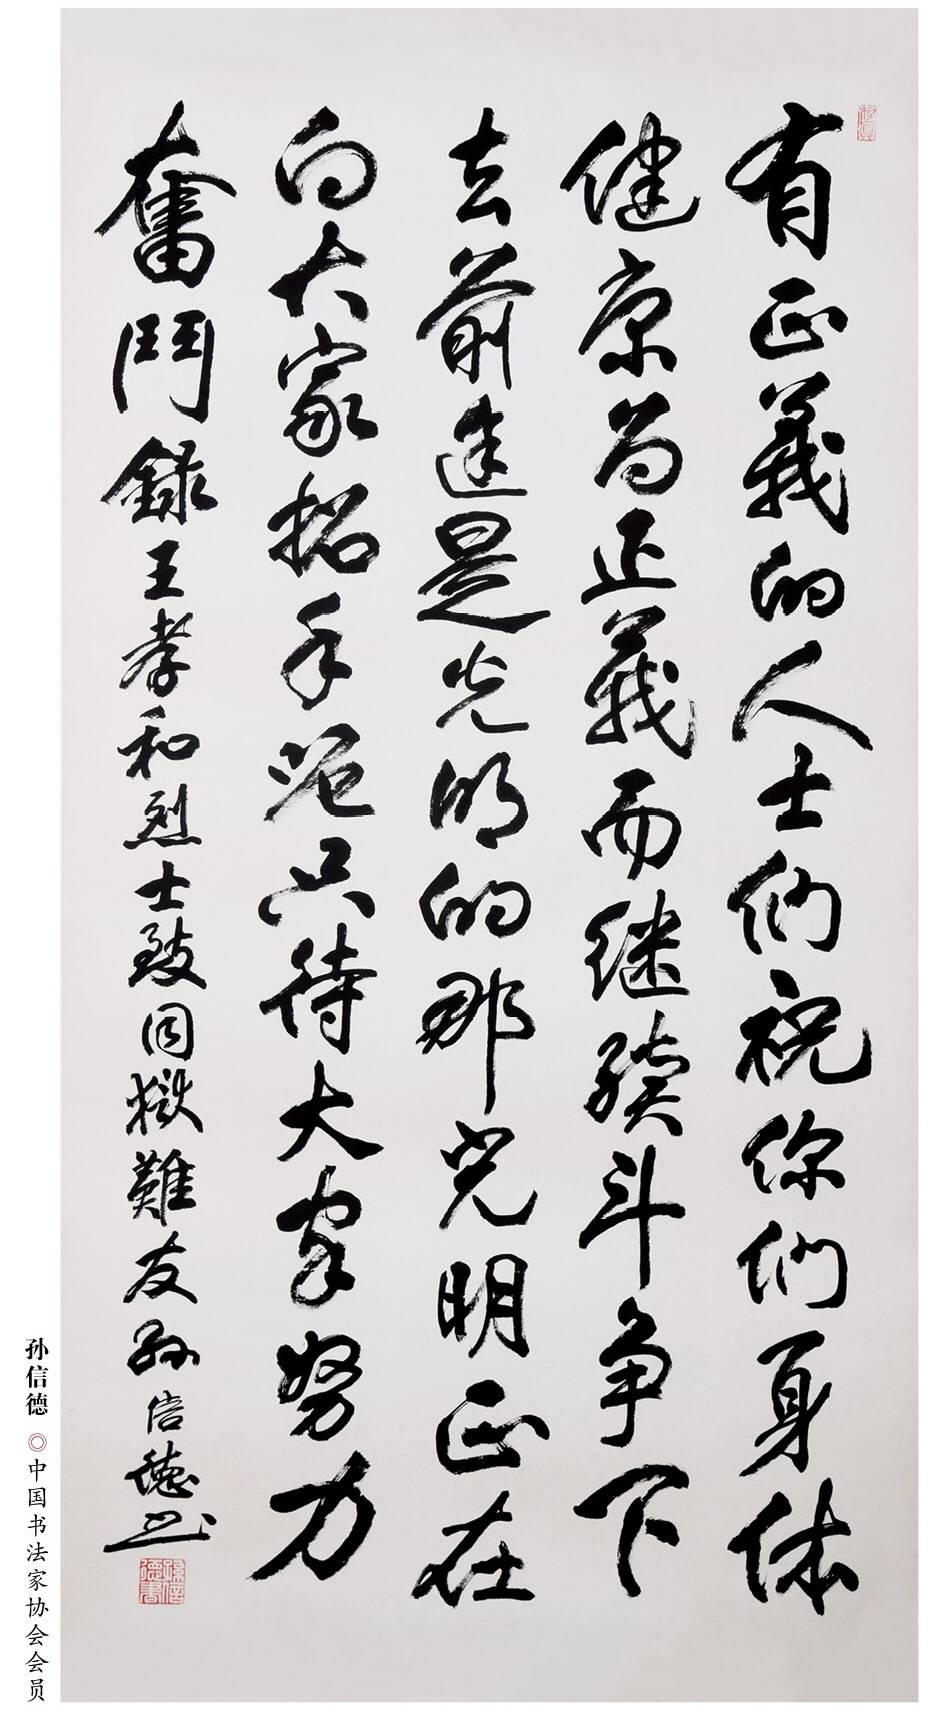 有正義的人士们祝你们身体
健康为正義而继續斗争下
去前途是光明的那光明正在
向大家招手呢只待大家努力
奮鬥録王孝和烈士致同獄難友孫信德书
孫信德書
孙信德◎中国书法家协会会员